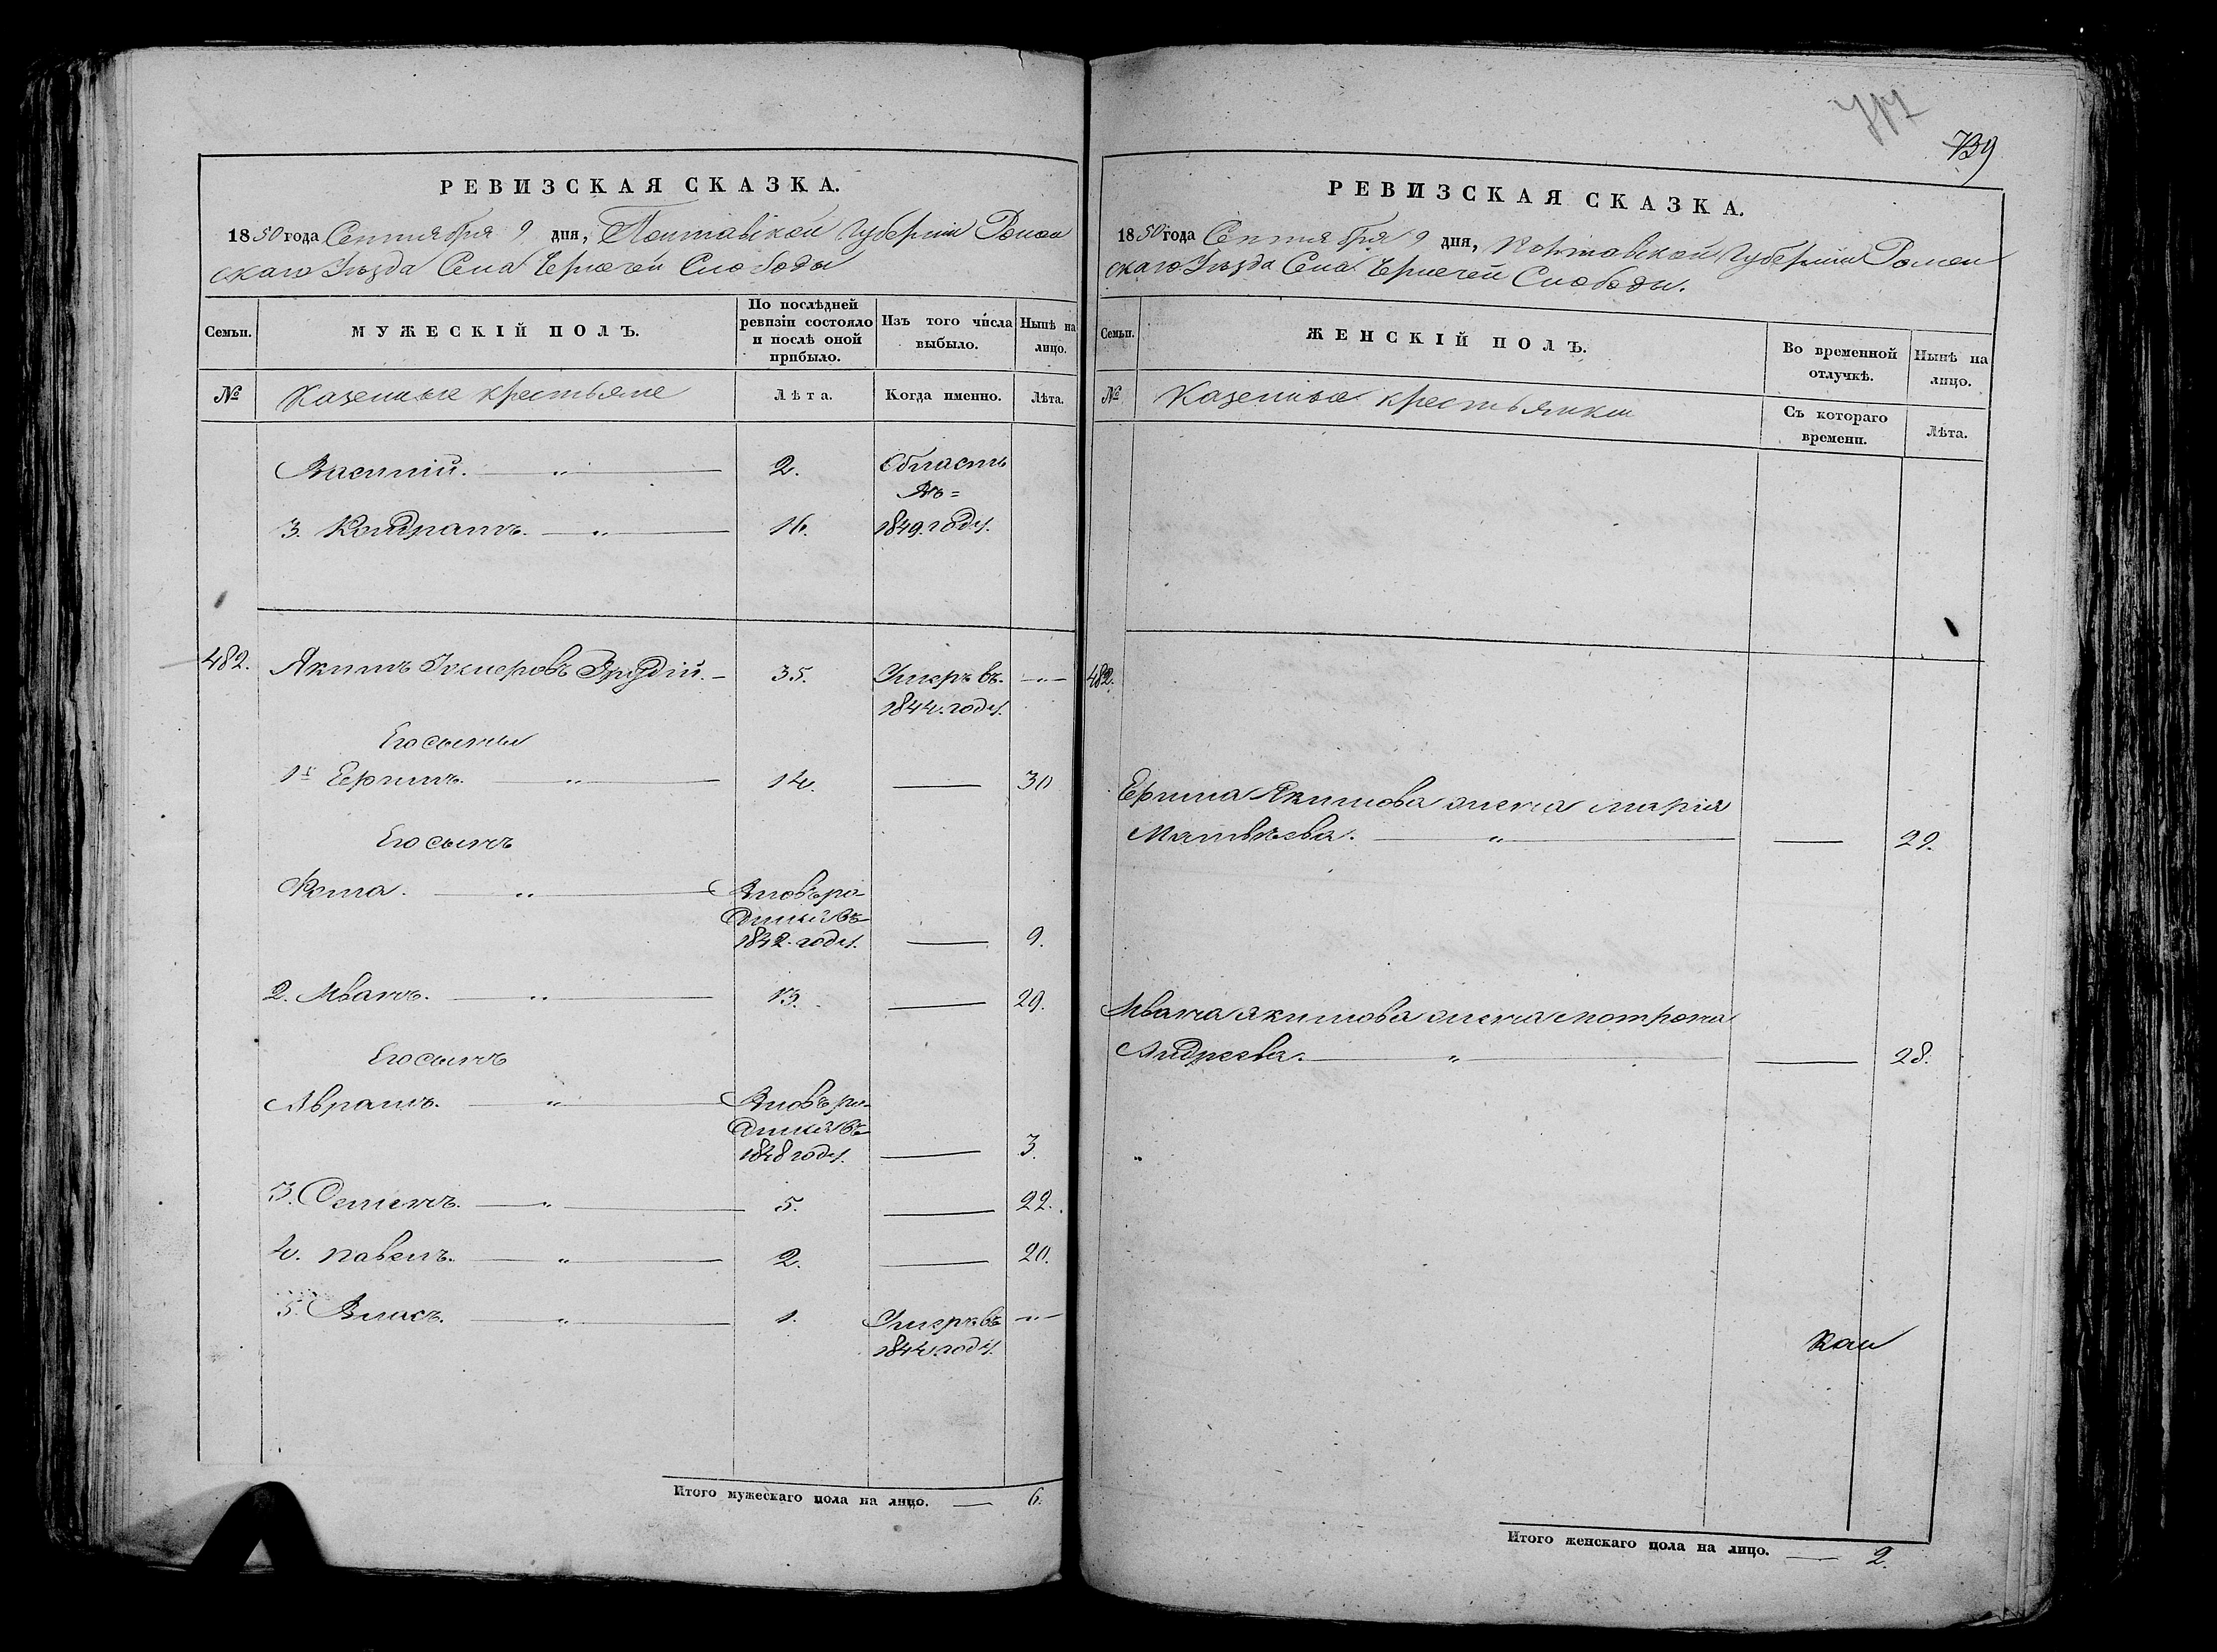 739
РЕВИЗСКАЯ СКАЗКА.
1850 года Сентября 9 дня, Полтавской Губернии Ромен
скаго Уѣзда Села Чернечей Слободы
Семьи.
МУЖЕСКІЙ ПОЛЪ.
По послѣдней
ревизіи состояло
и послѣ оной
прибыло.
Изъ того числа
выбыло.
Нынѣ на
лицо.
№
Казенные крестьяне
Лѣта.
Когда именно.
Лѣта.
Василий. — " — 2. Область
Въ=
3. Кондратъ. — " — 16. 1849. году.
482. Якимъ — 35. Умеръ въ — " —
1844. году.
Его сыны
1й — " — 14. — 30
Его сынъ
Фома. — " — Вновь ро-
дился въ
1842. году. — 9.
2. Иванъ. — " — 13. — 29.
Его сынъ
Аврамъ. — " — Вновь ро-
дился въ
1848 году. — 3.
3. Семенъ. — " — 5. — 22.
4. Павелъ. — " — 2. — 20.
5 Власъ. — " — 1. Умеръ въ — " —
1844. году.
Итого мужескаго пола на лицо. — 6.
РЕВИЗСКАЯ СКАЗКА.
1850 года Сентября 9 дня, Полтавской Губернии Ромен
скаго Уѣзда Села Чернечей Слободы.
Семьи.
ЖЕНСКІЙ ПОЛЪ.
Во временной
отлучкѣ.
Нынѣ на
лицо.
№
Казенные крестьянки
Съ котораго
времени.
Лѣта.
482.
Якимова жена Марія
Матвѣева. — " — — 29.
Ивана Якимова жена Мотрона
Андреева. — " — — 28.
Итого женскаго пола на лицо. — 2.